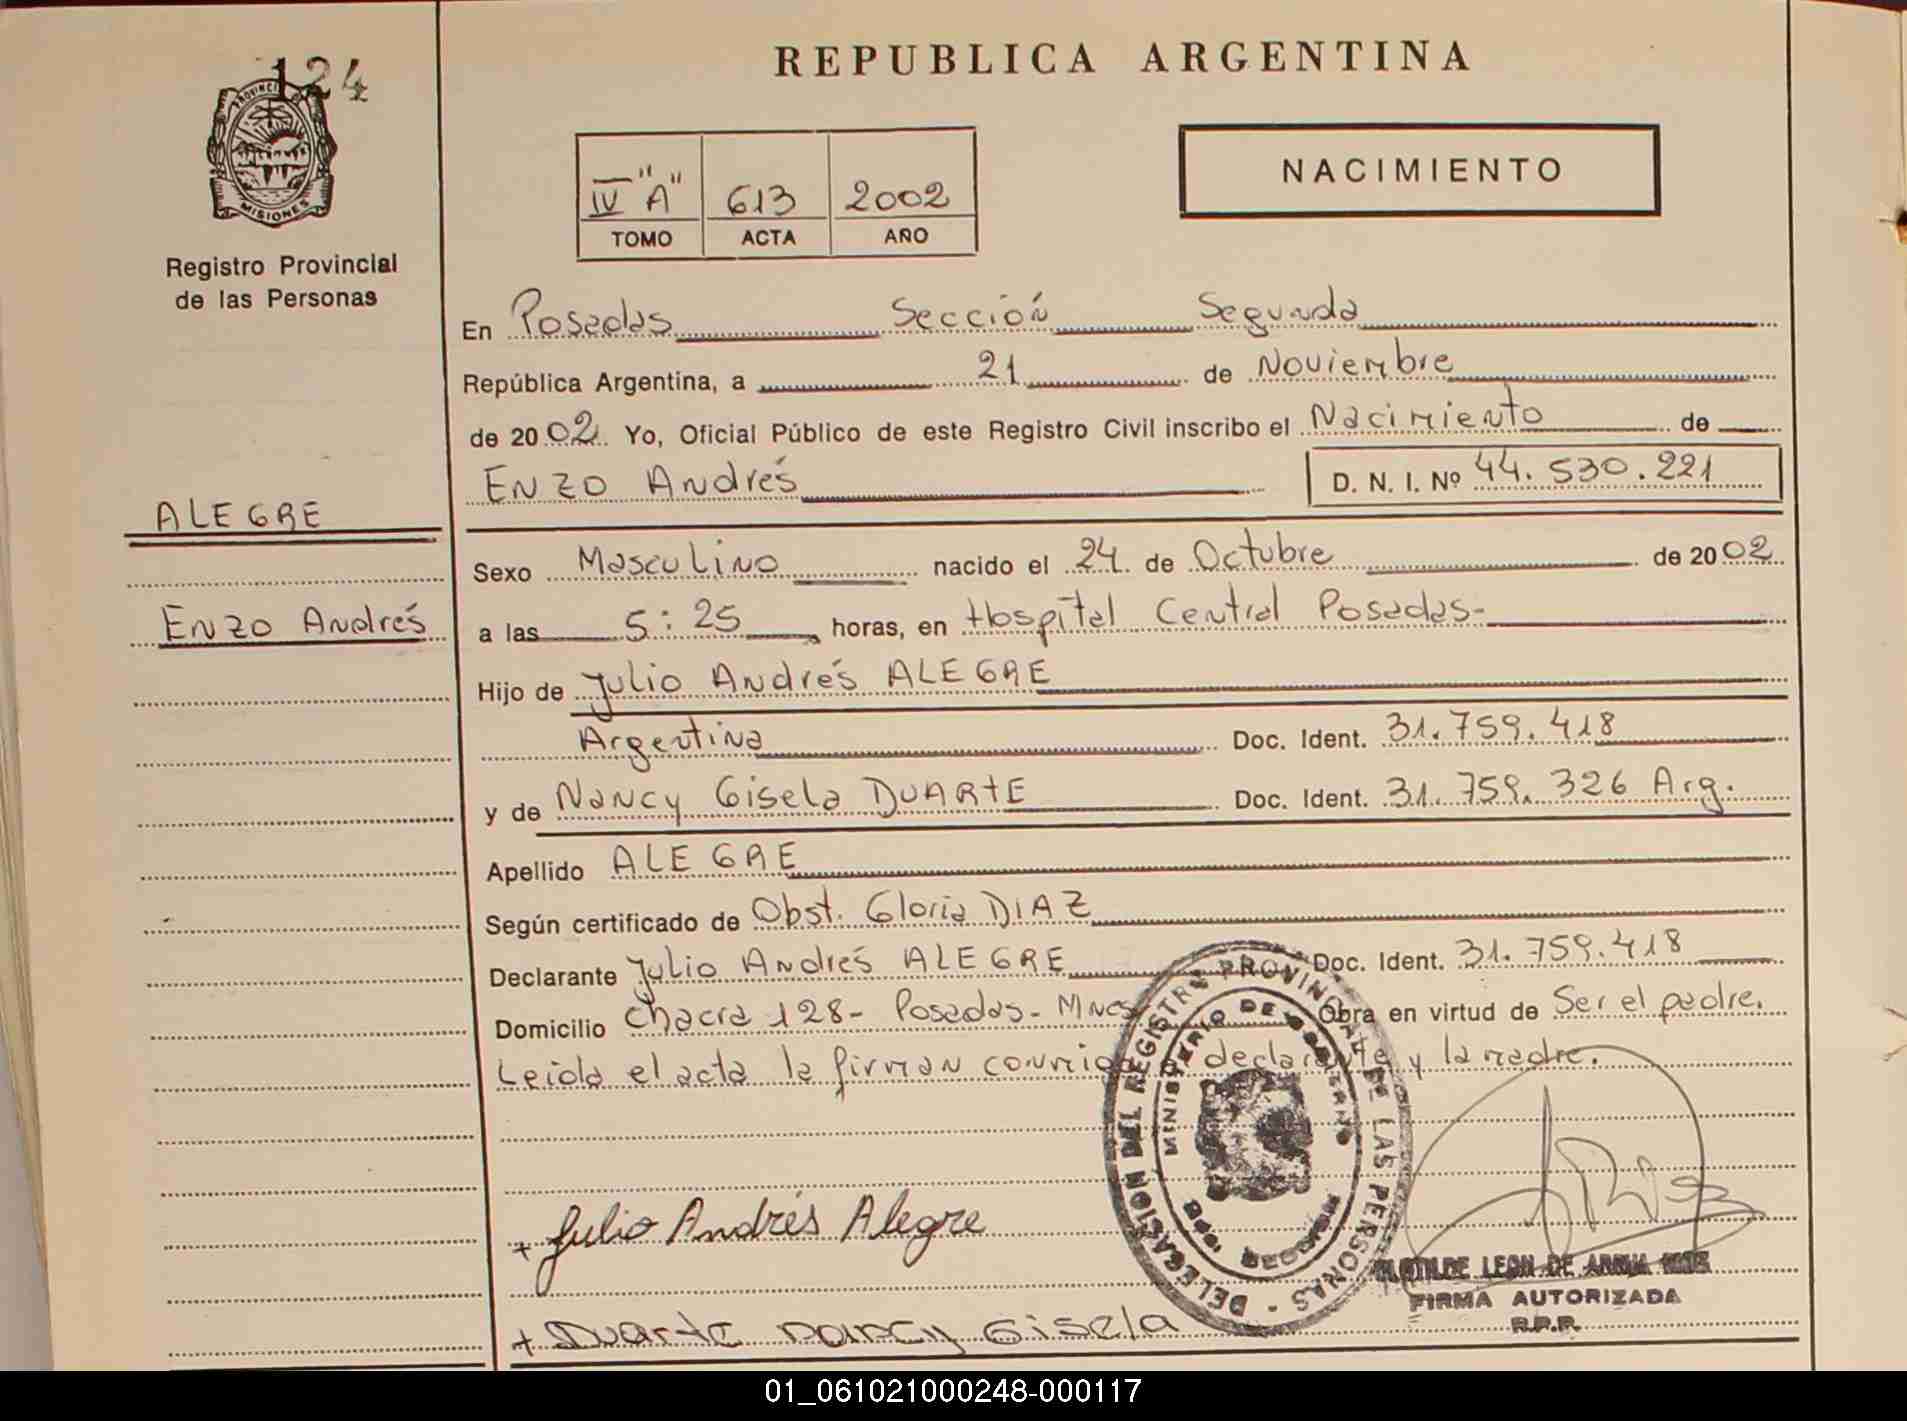 124
PROVINCIA DE
MISIONES
Registro Provincial
de las Personas
ALEGRE
Enzo Andrés
REPUBLICA ARGENTINA
IV "A" 613 2002
TOMO ACTA AÑO
NACIMIENTO
En Posadas Sección Segunda
República Argentina, a 21 de Noviembre
de 2002 Yo, Oficial Público de este Registro Civil inscribo el Nacimiento de
Enzo Andrés D. N. I. Nº 44.530.221
Sexo Masculino nacido el 24 de Octubre de 2002
a las 5:25 horas, en Hospital Central Posadas-
Hijo de Julio Andrés ALEGRE
Argentina Doc. Ident. 31.759.418
y de Nancy Gisela DUARTE Doc. Ident. 31.759.326 Arg.
Apellido ALEGRE
Según certificado de Obst. Gloria DIAZ
Declarante Julio Andrés ALEGRE Doc. Ident. 31.759.418
Domicilio Chacra 128- Posadas- Mnes Obra en virtud de Ser el padre.
Leida el acta la firman conmigo declarante y la madre.
DELEGASION DEL REGISTRO PROVINCIAL DE LAS PERSONAS -
MINISTERIO DE GOBIERNO
+ Julio Andrés Alegre
+ Duarte Nancy Gisela
CLOTILDE LEON DE
FIRMA AUTORIZADA
R.P.P.
01_061021000248-000117